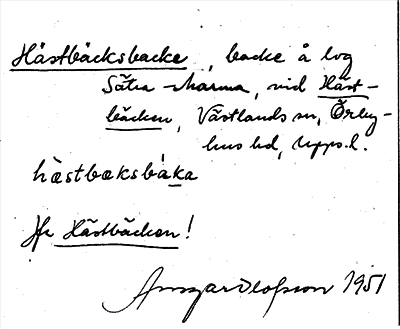 Hästbäcksbacke, backe å lvg
Sätra - Marma, vid Häst-
bäcken, Västlands sn, Örby-
hus hd, Upps.l.
hæ̀stbæksbàka
Jfr Hästbäcken!
Ansgar Olofsson 1951